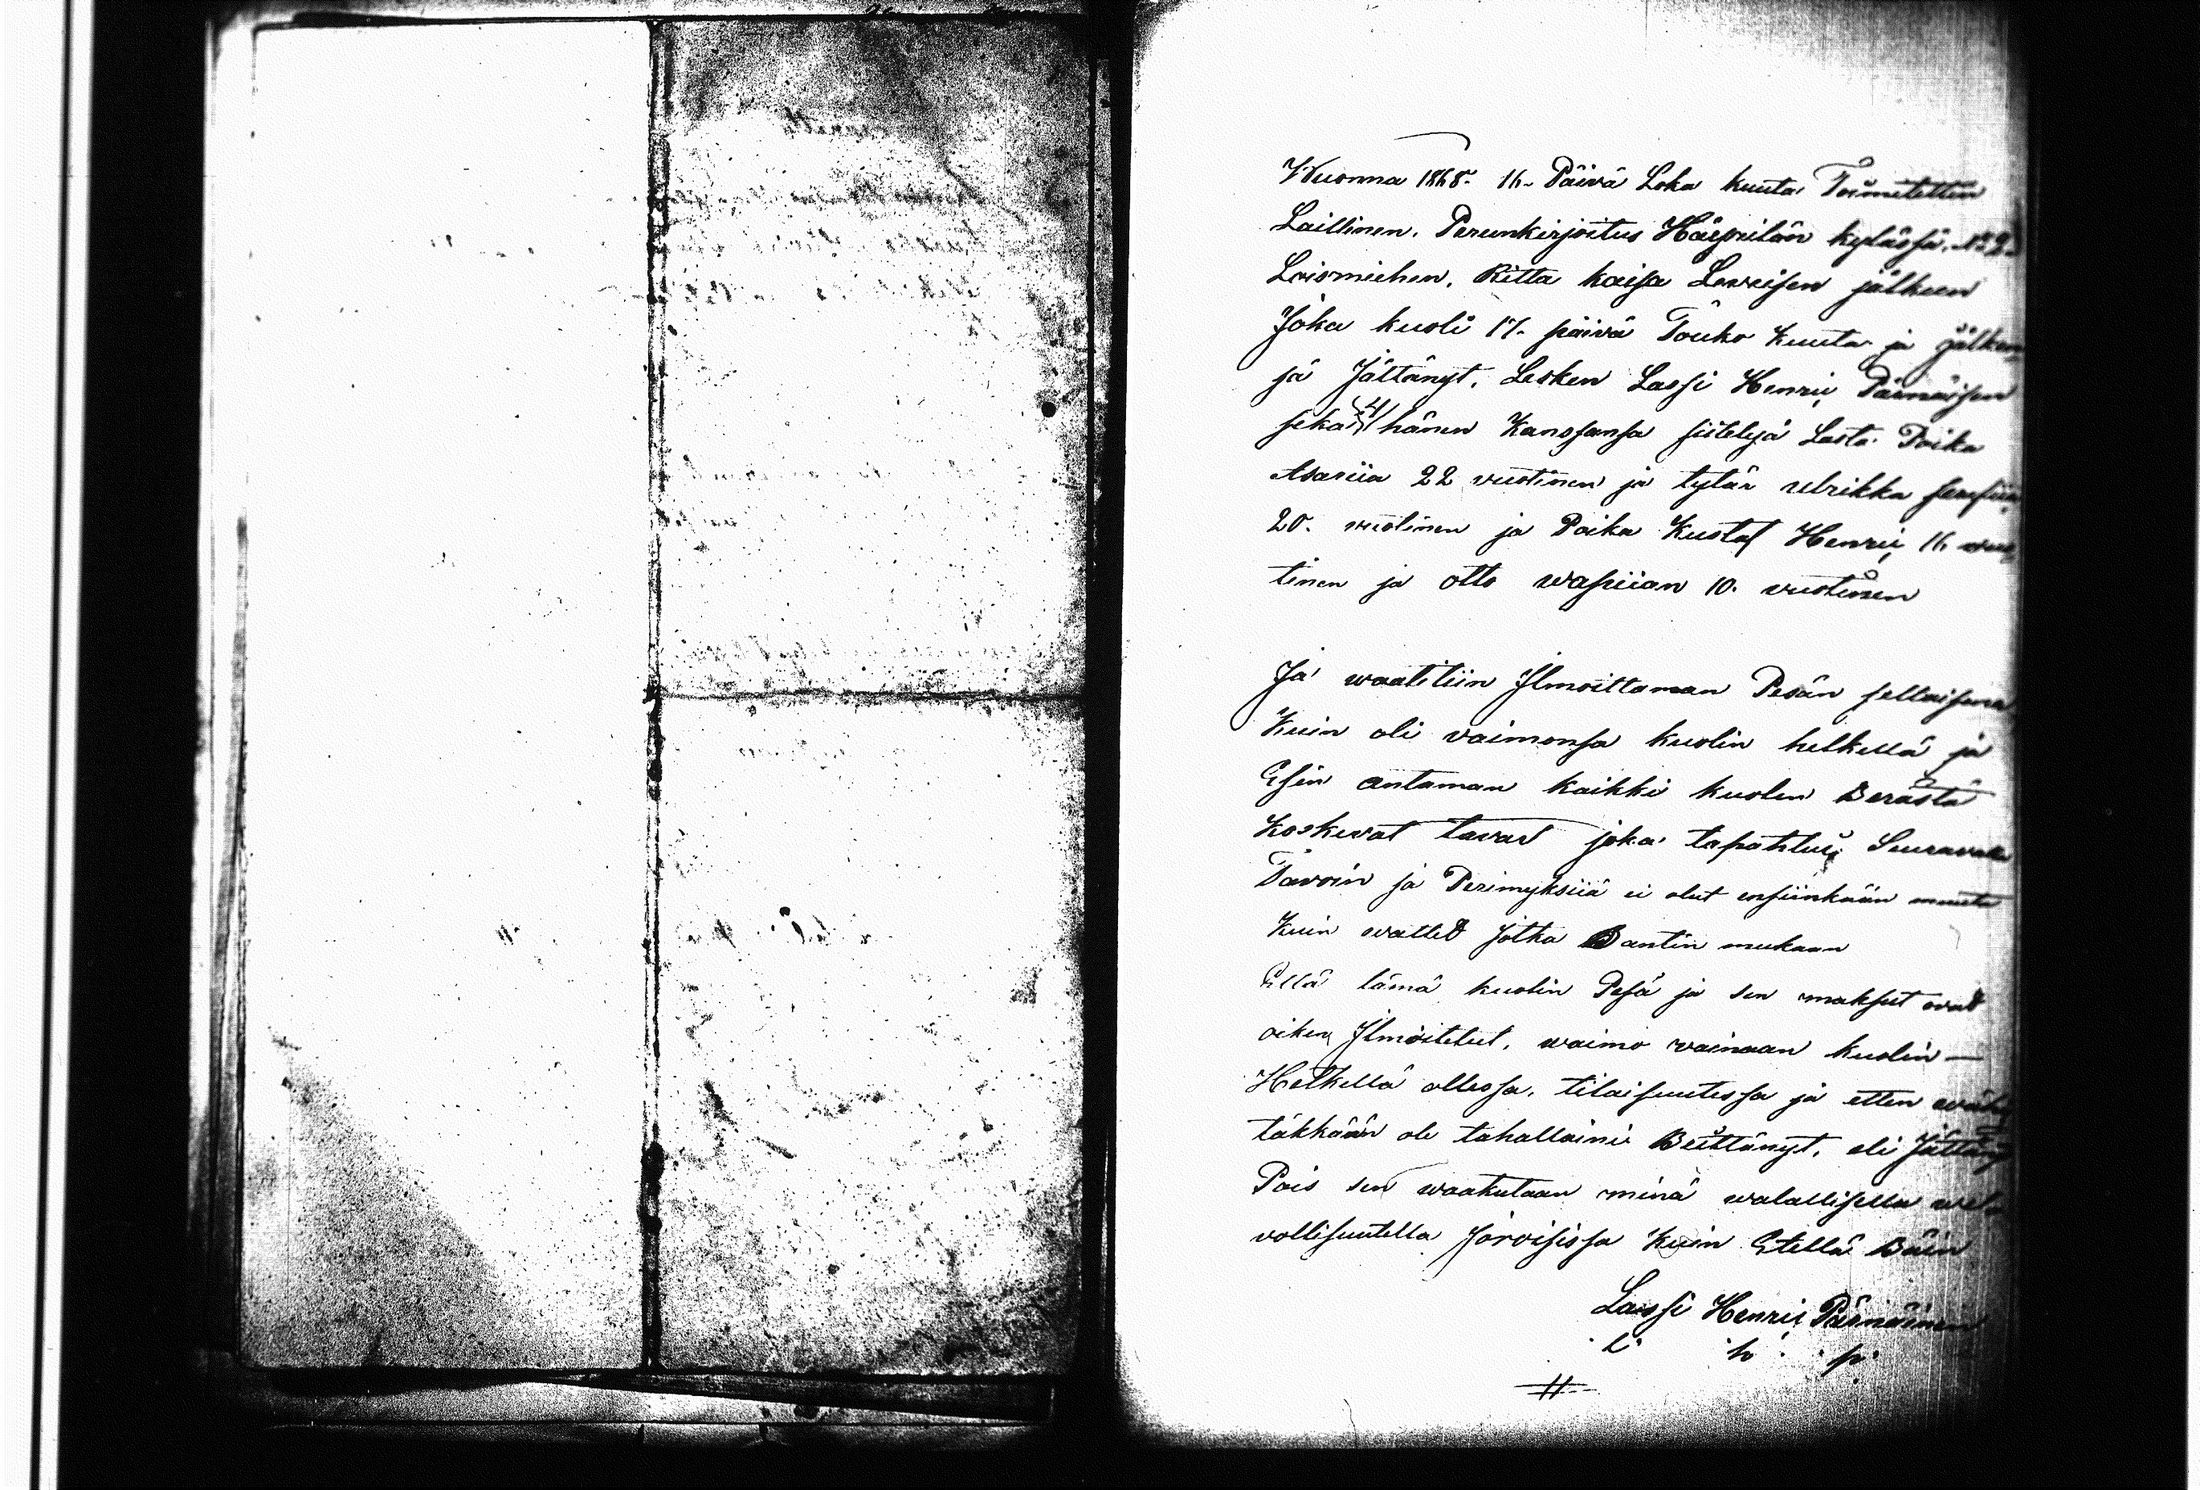 Wuonna 1868. 16. Päivä Loka kuuta Toimitettiin
Laillinen. Perunkirjoitus Häyrilän kylässä. No 2
Loismiehen. Ritta kaisa Lovisen jälkeen
Joka kuoli 17. päivä Touko kuuta ja jälken
sä Jättänyt. Lesken Lassi Henrii Pärnäisen
seka 4 hänen Kanssansa siitetyjä Lasta. Poika
Asariia 22 vuotinen ja tytär ulrikka
20. vuotinen ja Poika Kustaf Henrii 16 vuo
tinen ja otto wapiian 10. vuotinen
Ja waatitiin Ilmoittaman Pesän sellaisena
Kuin oli vaimonsa kuolin hetkellä ja
Esin antaman kaikki kuolen Berästä
Koskevat tavarat joka tapahtui Seuravalla
Tavoin ja Perimyksiiä ei olut ensiinkään muuta
Kuin wattet Jotka Bantin mukaan
Että tämä kuolin Pesä ja sen maksut ovat
oiken Ilmoitetut. waimo vainaan kuolin—
Hetkellä ollessa. tilaisuutessa ja etten wähin
täkkään ole tahallaini Beittänyt. eli Jättäny
Pois sen waakutaan minä walallisella wel
vollisuutella Joroisissa Kuin Etellä Bäin
Lassi Henrii Pärnäinen
L. h. p.